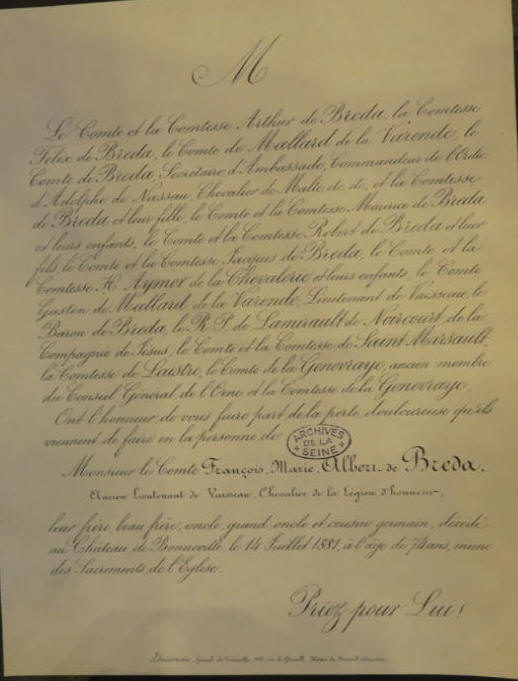 M
Le Comte et la Comtesse Arthur de Breda, la Comtesse
Félix de Breda, le Comte de Mallard de la Varende, le
Comte de Breda, Secrétaire d'Ambassade, Commandeur de l'Ordre
d'Adolphe de Nassau, Chevalier de Malte, etc. etc. et la Comtesse
de Breda et leur fille, le Comte et la Comtesse Maurice de Breda
et leurs enfants, le Comte et la Comtesse Robert de Breda et leur
fils, le Comte et la Comtesse Jacques de Breda, le Comte et la
Comtesse H. Aymer de la Chevalerie et leurs enfants, le Comte
Gaston de Mallard de la Varende, Lieutenant de Vaisseau, le
Baron de Breda, le R. P. de Lamirault de Noircourt, de la
Compagnie de Jésus, le Comte et la Comtesse de Saint Marsault,
la Comtesse de Laistre, le Comte de la Genevraye, ancien membre
du Conseil Général de l'Orne et la Comtesse de la Genevraye,
Ont l'honneur de vous faire part de la perte douloureuse qu'ils
viennent de faire en la personne de
ARCHIVES
DE LA
SEINE
Monsieur le Comte François, Marie, Albert de Breda,
Ancien Lieutenant de Vaisseau, Chevalier de la Légion d'honneur,
leur frère, beau frère, oncle, grand oncle et cousin germain, décédé
au Château de Bonneville, le 14 Juillet 1881, à l'âge de 74 ans, muni
des Sacrements de l'Eglise.
Priez pour Lui!